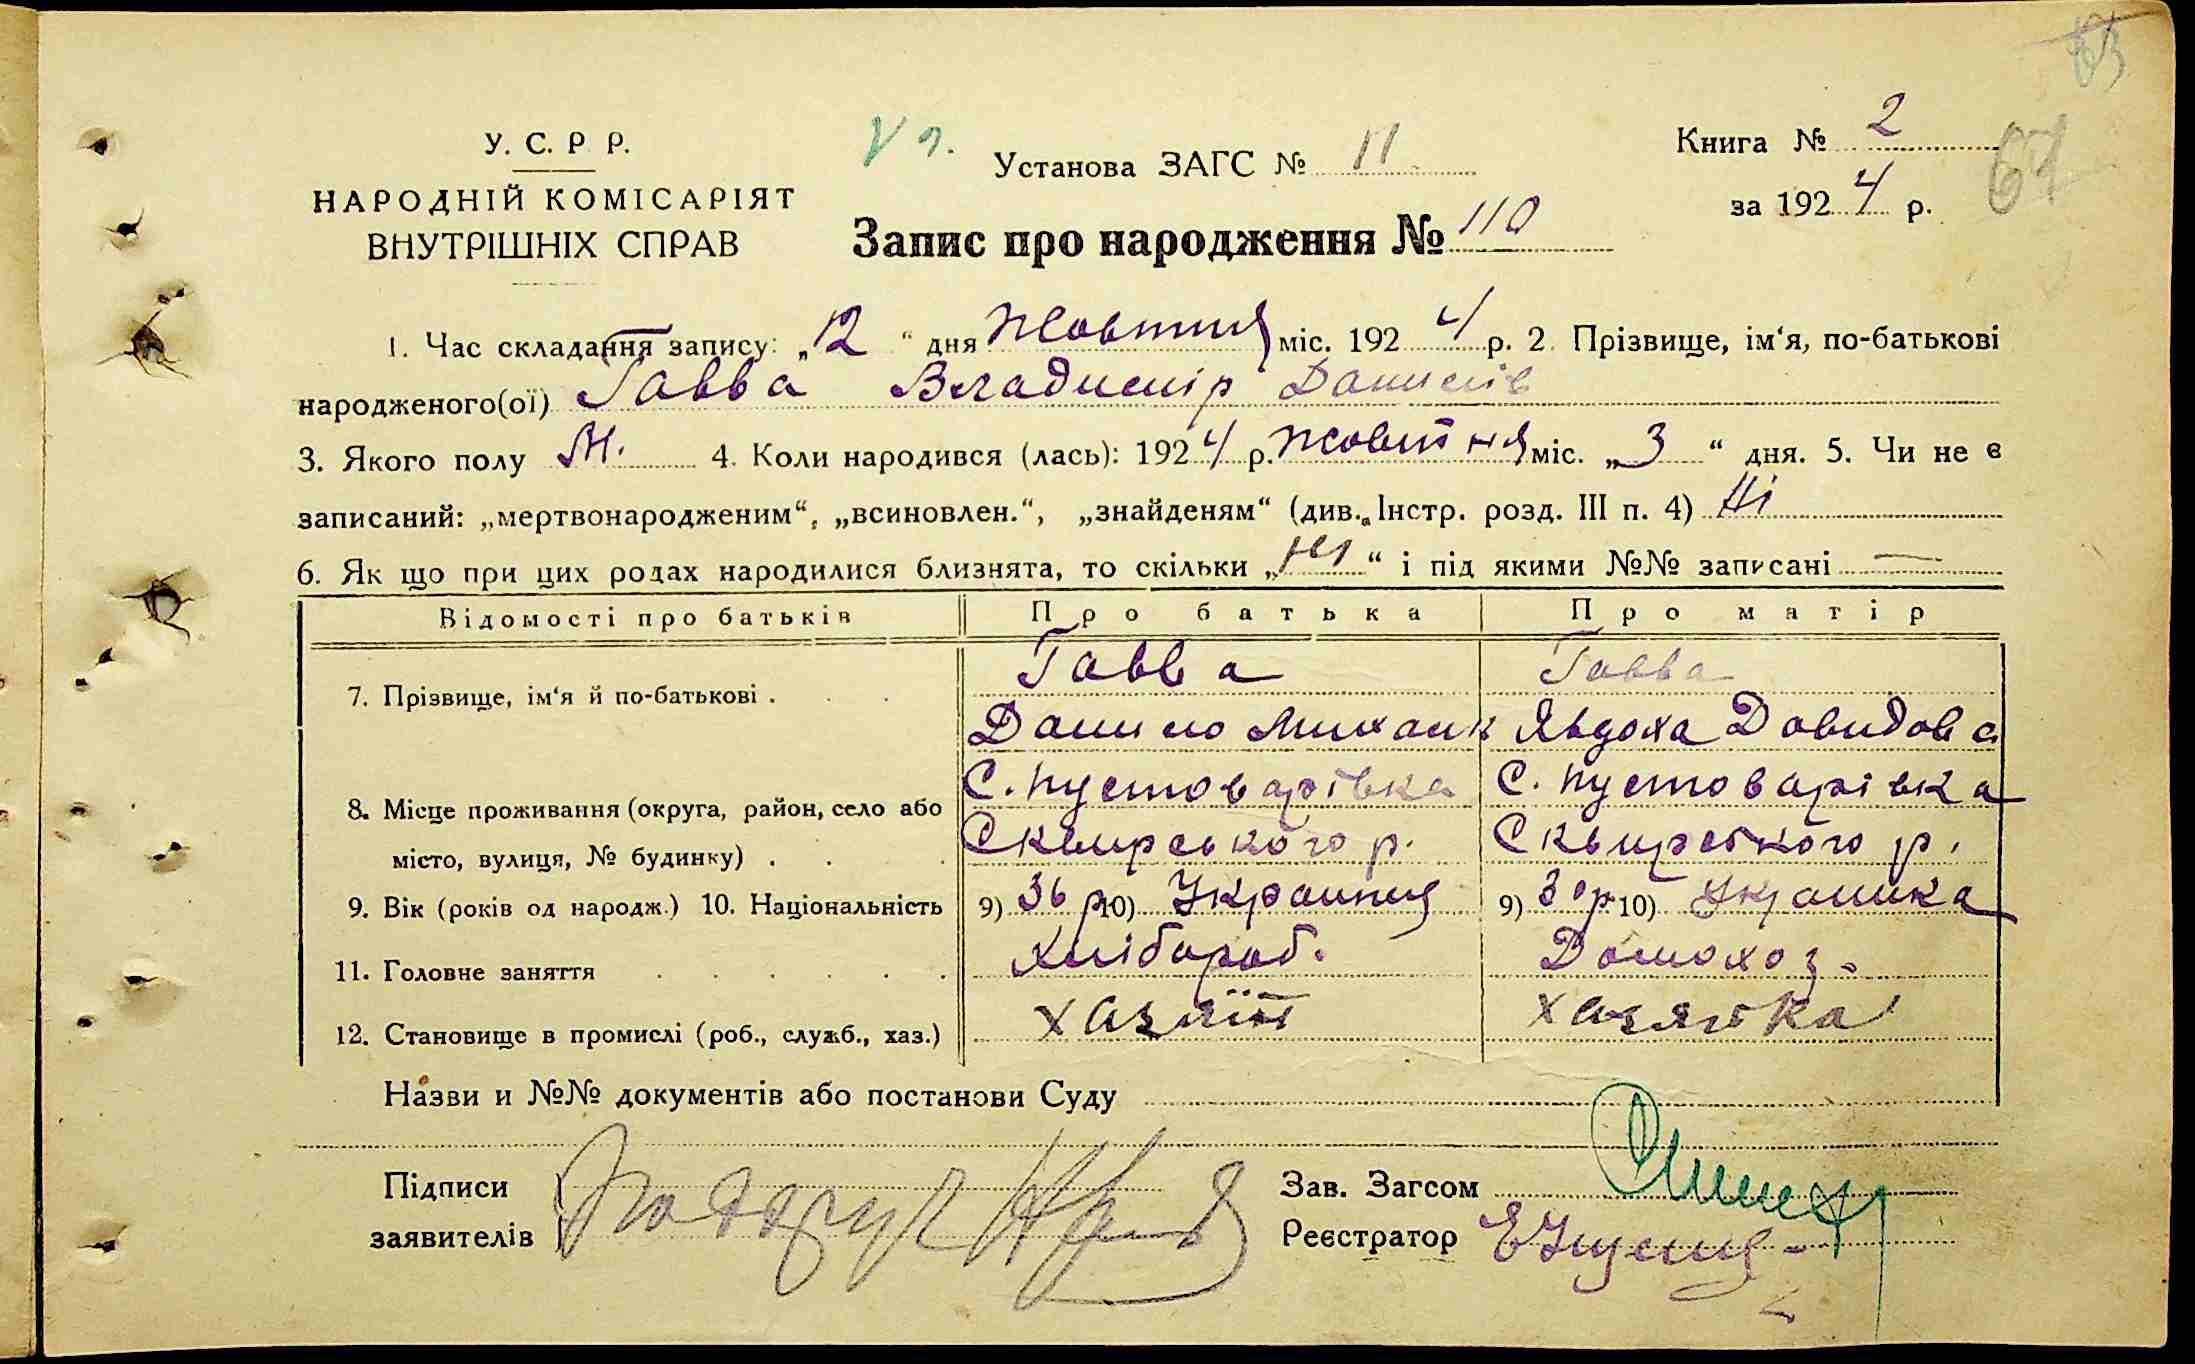 63
У. С. Р. Р.
НАРОДНІЙ КОМІСАРІЯТ
ВНУТРІШНІХ СПРАВ
Установа ЗАГС № 11
Запис про народження № 110
Книга № 2
за 1924 р.
64
1. Час складання запису: „12“ дня Жовтня міс. 1924 р. 2. Прізвище, ім‘я, по-батькові
народженого(ої) Гавва Владимір Данилів
3. Якого полу М. 4. Коли народився (лась): 1924 р. Жовтня міс. „3“ дня. 5. Чи не є
записаний: „мертвонародженим“, „всиновлен.“, „знайденям“ (див. Інстр. розд. III п. 4) Ні
6. Як що при цих родах народилися близнята, то скільки „ні“ і під якими №№ записані —
Відомості про батьків Про батька Про матір
7. Прізвище, ім‘я й по-батькові . Гавва Гавва
Данило Михайл Явдоха Давидова
8. Місце проживання (округа, район, село або С. Пустоварівка С. Пустоварівка
місто, вулиця, № будинку) . Сквирського р. Сквирського р.
9. Вік (років од народж.) 10. Національність 9) 36 р 10) Украинця 9) 30 р 10) Украинка
11. Головне заняття Хлібороб. Домохоз.
12. Становище в промислі (роб., служб., хаз.) хазяїн хазяйка
Назви и №№ документів або постанови Суду
Підписи
заявителів
Зав. Загсом
Реєстратор